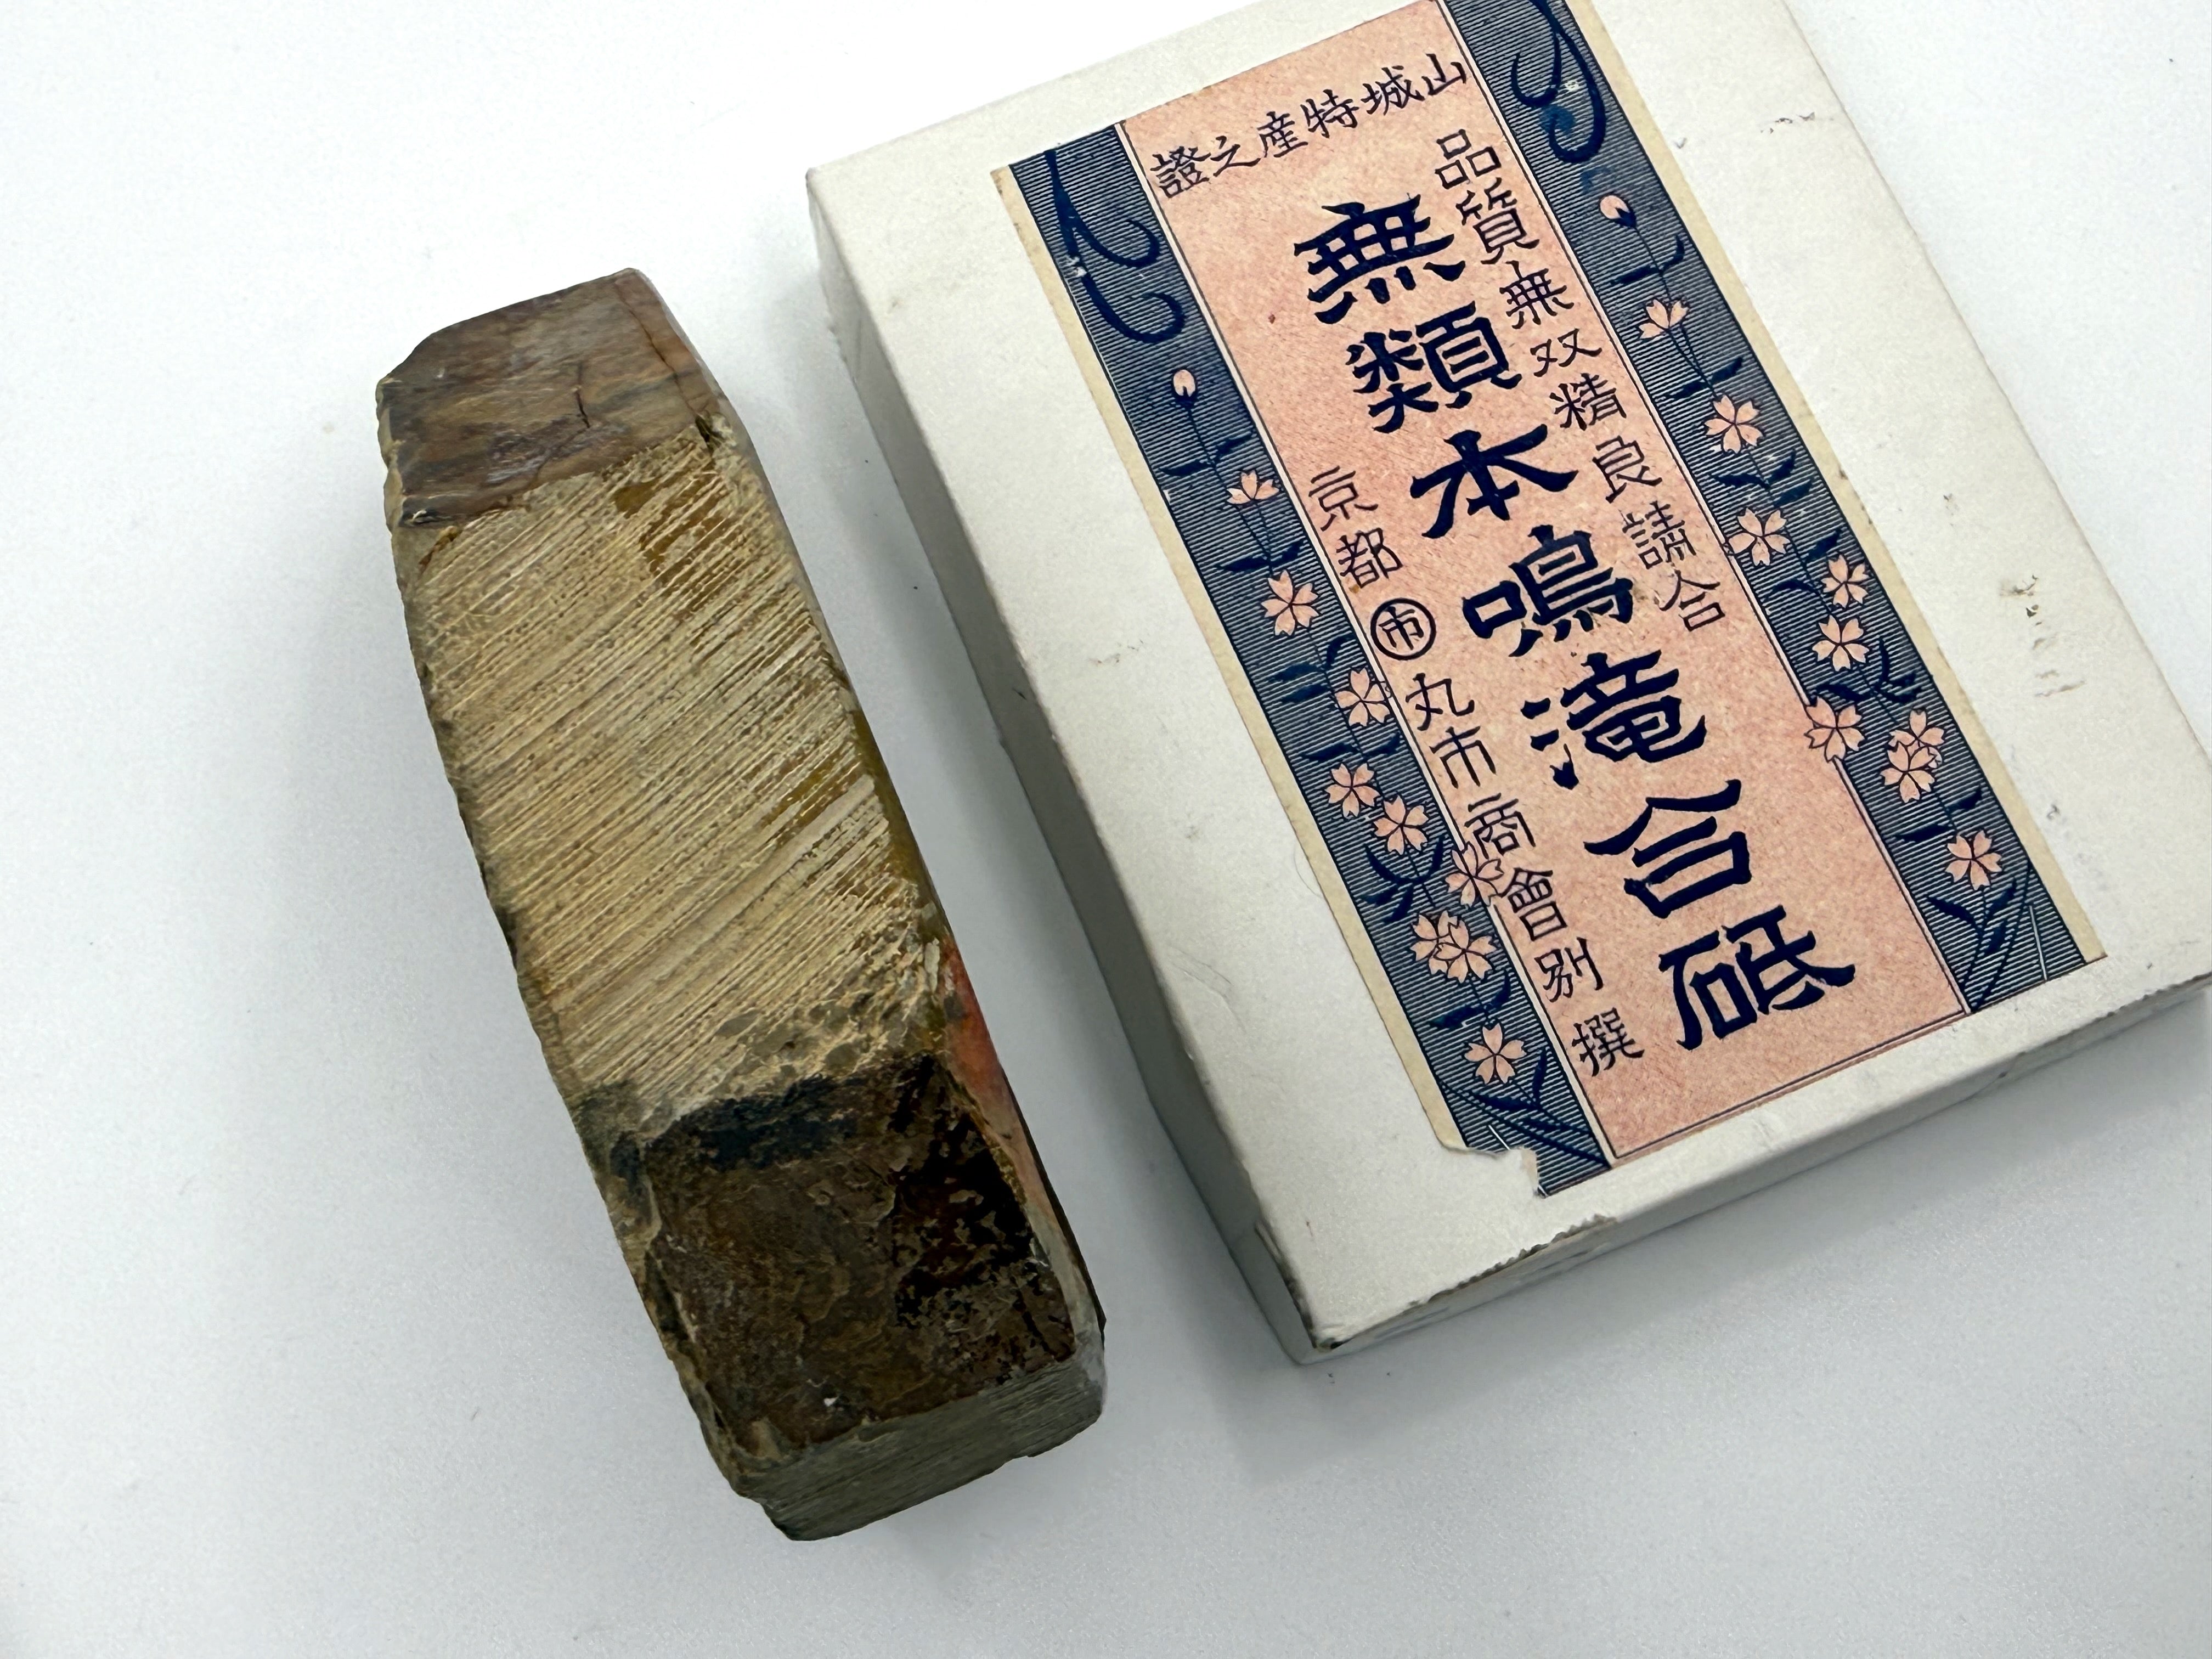 山城特産之證
品質無双精良請合
無類本鳴滝合砥
京都㊞丸市商會別撰